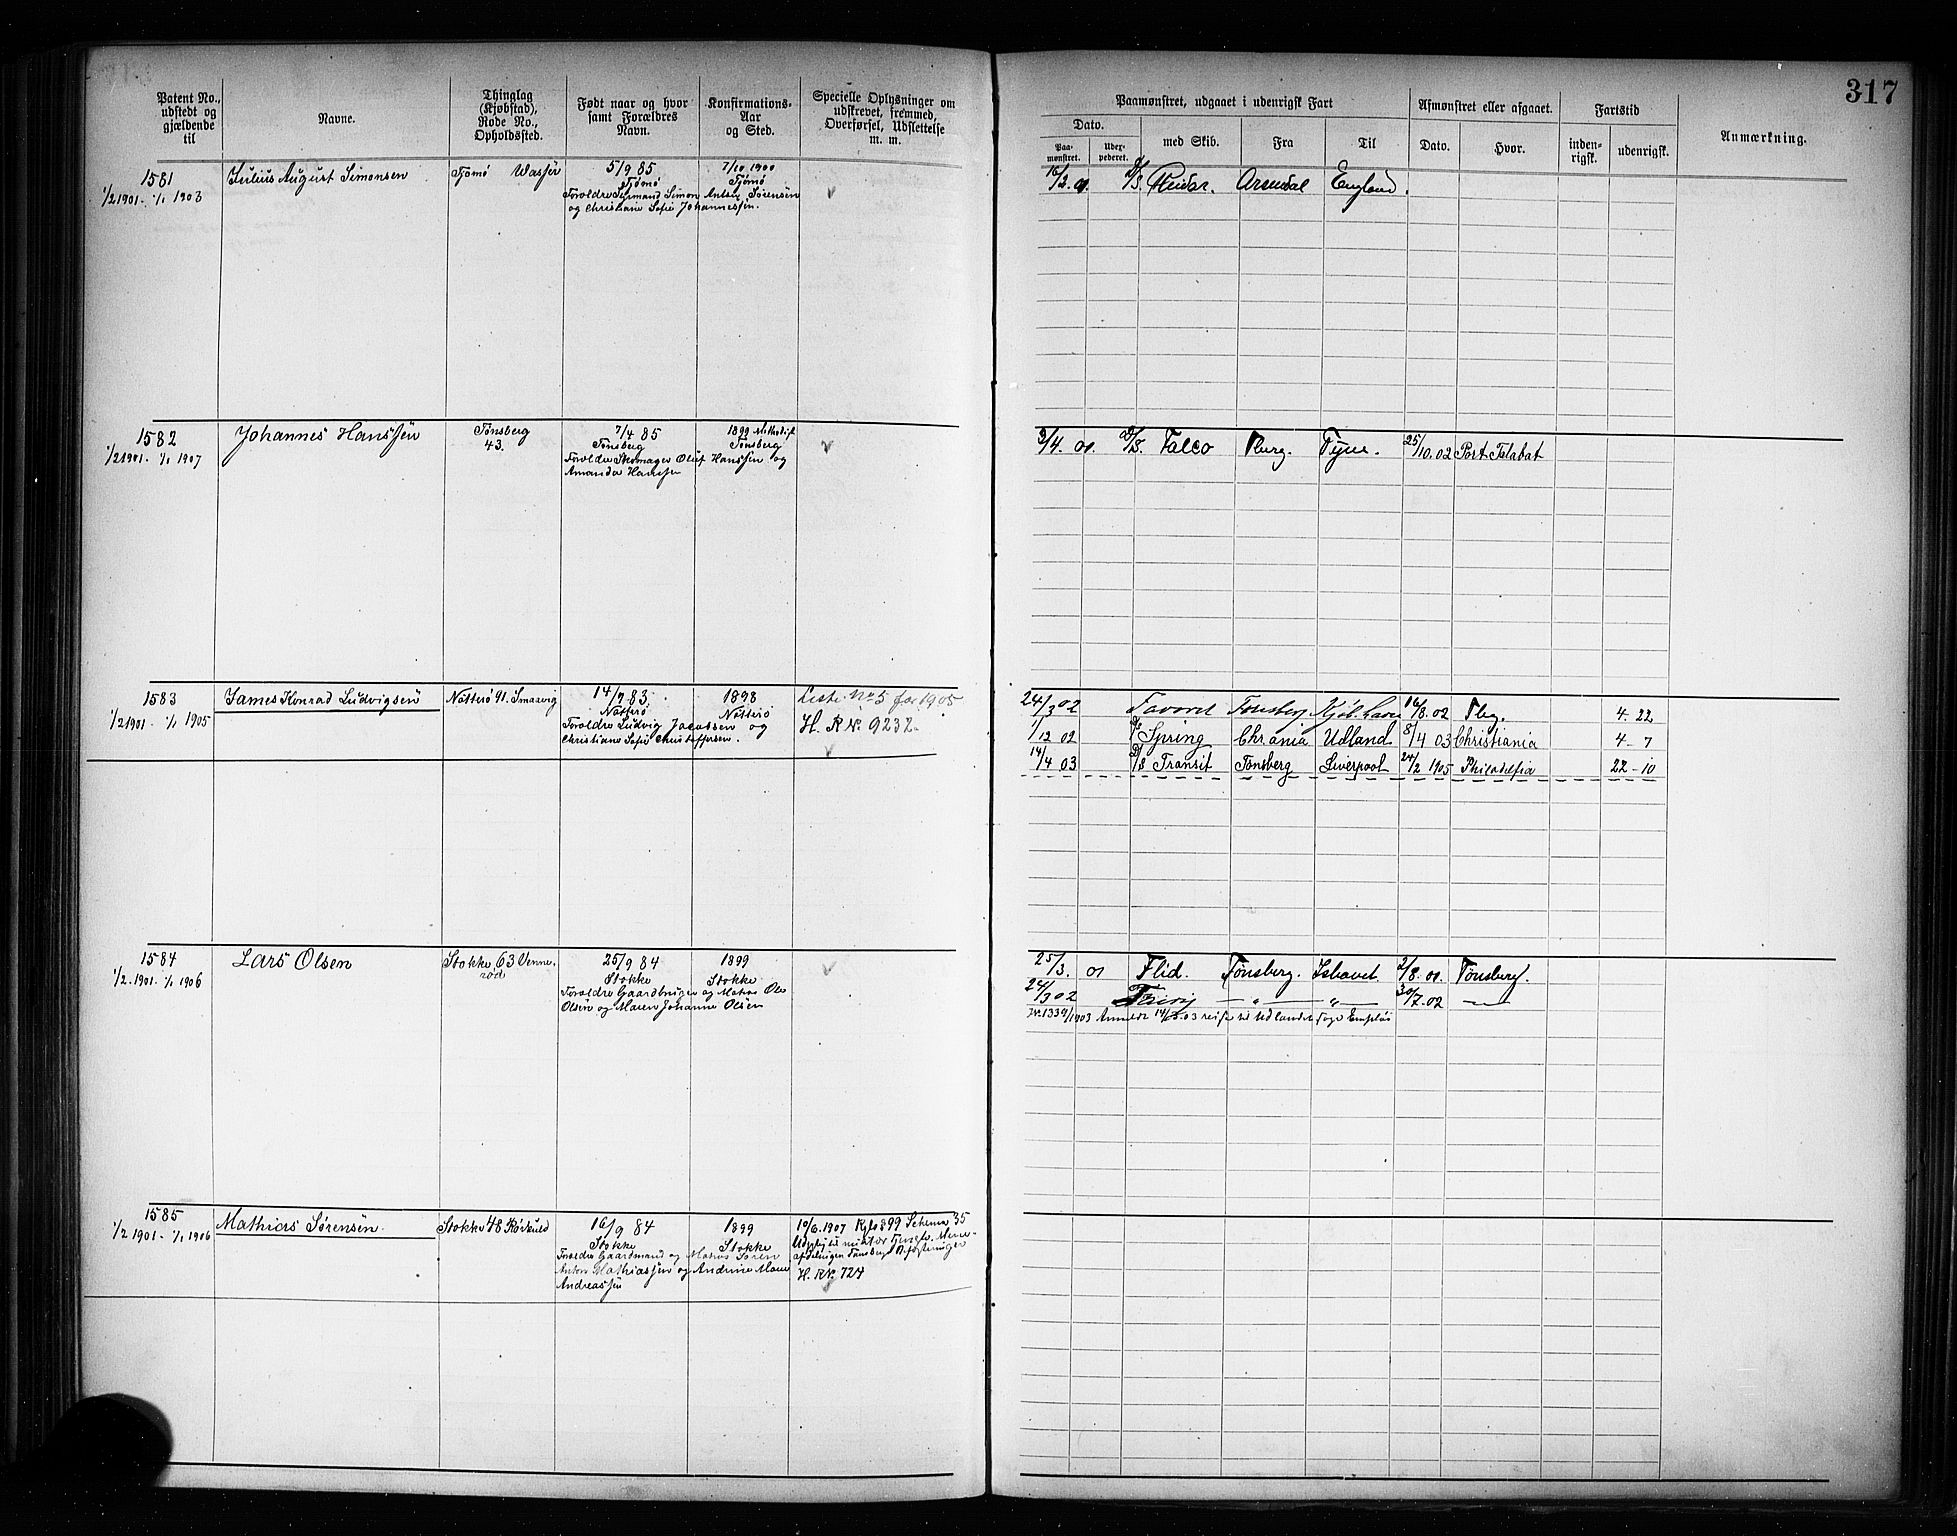 317
Patent No., udstedt og gjældende til
Navne.
Thinglag (Kjøbstad), Rode No., Opholdssted.
Født naar og hvor samt Forældres Navn.
Konfirmations-Aar og Sted.
Specielle Oplysninger om udskrevet, fremmed, Overførsel, Udslettelse m. m.
Paamønstret, udgaaet i udenrigsk Fart
Dato.
Paa-mønstret.
Udex-pederet.
med Skib.
Fra
Til
Afmønstret eller afgaaet.
Dato.
Hvor.
Fartstid
inden-rigsk.
udenrigsk.
Anmærkning.
1581
1/2 1901 - 1/1 1903
Julius August Simonsen
Tjømø
5/9 85
Tjømø
Forældre Styrmand Simon Anton Sørensen
og Christiane Sofie Johannessen.
7/10 1900
Tjømø
16/3. 01 Arendal England.
1582
1/2 1901 - 1/1 1907
Johannes Hanssen
Tønsberg
43.
7/4 85
Tønsberg
Forældre Skomager Oluf Hanssen og
Amanda Hanssen
1899 Methodist
Tønsberg
3/4. 01. D/S. Falco Tbürg. Tyne. 25/10. 02 Port Talabat
1583
1/2 1901 - 1/1 1905
James Konrad Ludvigsen
Nøtterø 91. Smørvig
14/9 83.
Nøtterø
Forældre Ludvig Jacobsen og
Christiane Sofie Christoffersen.
1898
Nøtterø
Liste No 5 for 1905
H. R No. 9232.
24/3 02 Favorit Tønsberg Kjøb.havn 16/8. 02 Tbg. 4-22
1/12 02 Spring Chrania Udland 8/4 03 Christiania 4-7
14/4 03 D/S Transit Tønsberg Liverpool 24/2 1905 Philadelfia 22-10
1584
1/2. 1901. 1/1 1906
Lars Olsen
Stokke 63 Venne-
rød
25/9 84
Stokke
Forældre Gaardbruger og Matros Ole
Olsen og Maren Johanne Olsen
1899
Stokke
25/3. 01 Flid. Tønsberg. Ishavet. 2/8. 01. Tønsberg.
24/3 02 — " — " — 30/7. 02 —
No. 1339/1903 Anmeldt 14/8. 03 reise til Udlandet søge
1585
1/2 1901 - 1/1 1906
Mathias Sørensen.
Stokke 48
16/9 84
Stokke
Forældre Gaardmand og Matros Søren
Anton Mathiassen og Andrine Marie
Andreassen
1899
Stokke
10/6. 1907 899 Schema 35
Tønsbergs Befæstninger
H. R No. 724